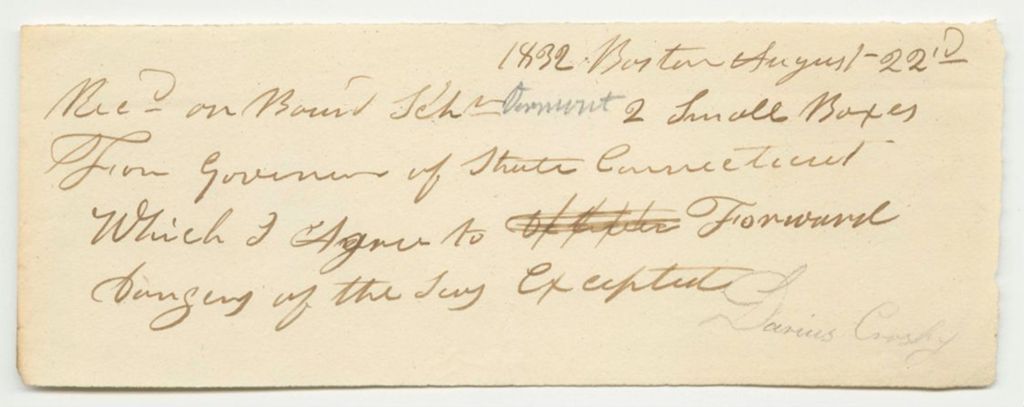 1832 Boston August 22d
Recd on Board Schr Vermont 2 Small Boxes
From Governor of State Connecticut
Which I Agree to Forward
Dangers of the Seas Excepted
Darius Crosby